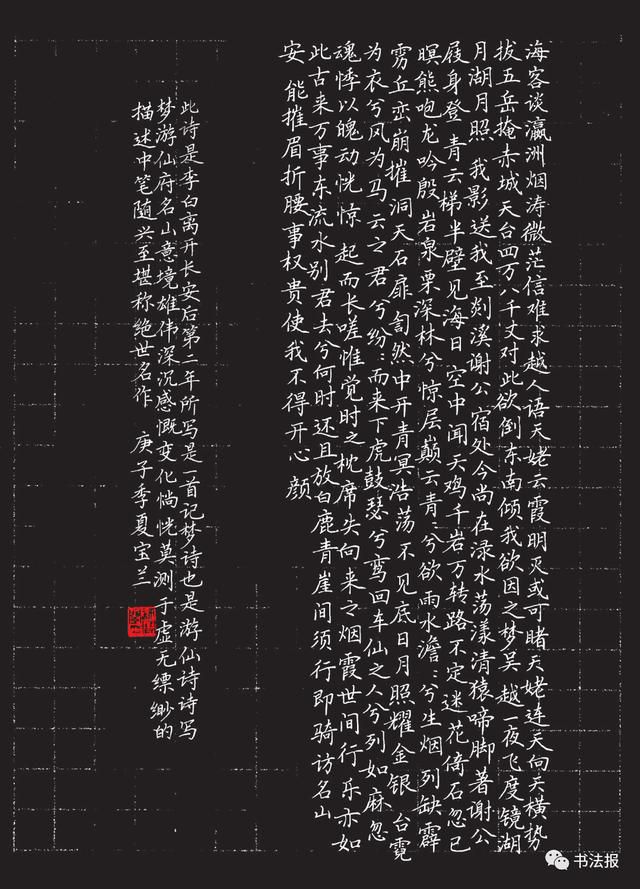 海客谈瀛洲烟涛微茫信难求越人语天姥云霞明灭或可睹天姥连天向天横势
拔五岳掩赤城天台四万八千丈对此欲倒东南倾我欲因之梦吴越一夜飞度镜湖
月湖月照我影送我至剡溪谢公宿处今尚在渌水荡漾清猿啼脚著谢公
屐身登青云梯半壁见海日空中闻天鸡千岩万转路不定迷花倚石忽已
暝熊咆龙吟殷岩泉栗深林兮惊层巅云青:兮欲雨水澹:兮生烟列缺霹
雳丘峦崩摧洞天石扉訇然中开青冥浩荡不见底日月照耀金银台霓
为衣兮风为马云之君兮纷:而来下虎鼓瑟兮鸾回车仙之人兮列如麻忽
魂悸以魄动恍惊起而长嗟惟觉时之枕席失向来之烟霞世间行乐亦如
此古来万事东流水别君去兮何时还且放白鹿青崖间须行即骑访名山
安能摧眉折腰事权贵使我不得开心颜
此诗是李白离开长安后第二年所写是一首记梦诗也是游仙诗诗写
梦游仙府名山意境雄伟深沉感慨变化惝恍莫测于虚无缥缈的
描述中笔随兴至堪称绝世名作 庚子季夏宝兰
书法报